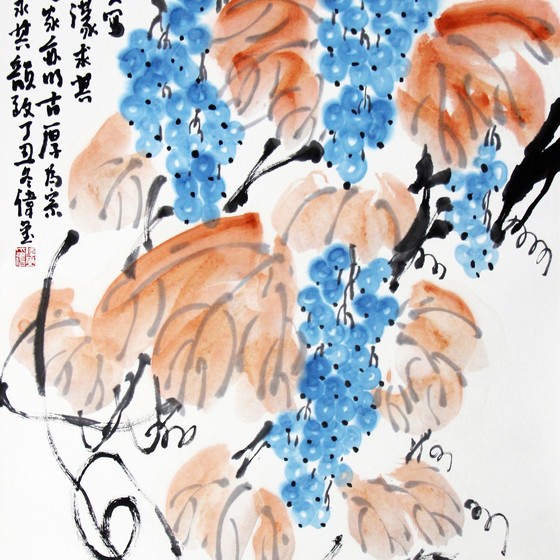 寫
濛求其
家亦以古厚為宗
求其韻致丁丑冬偉